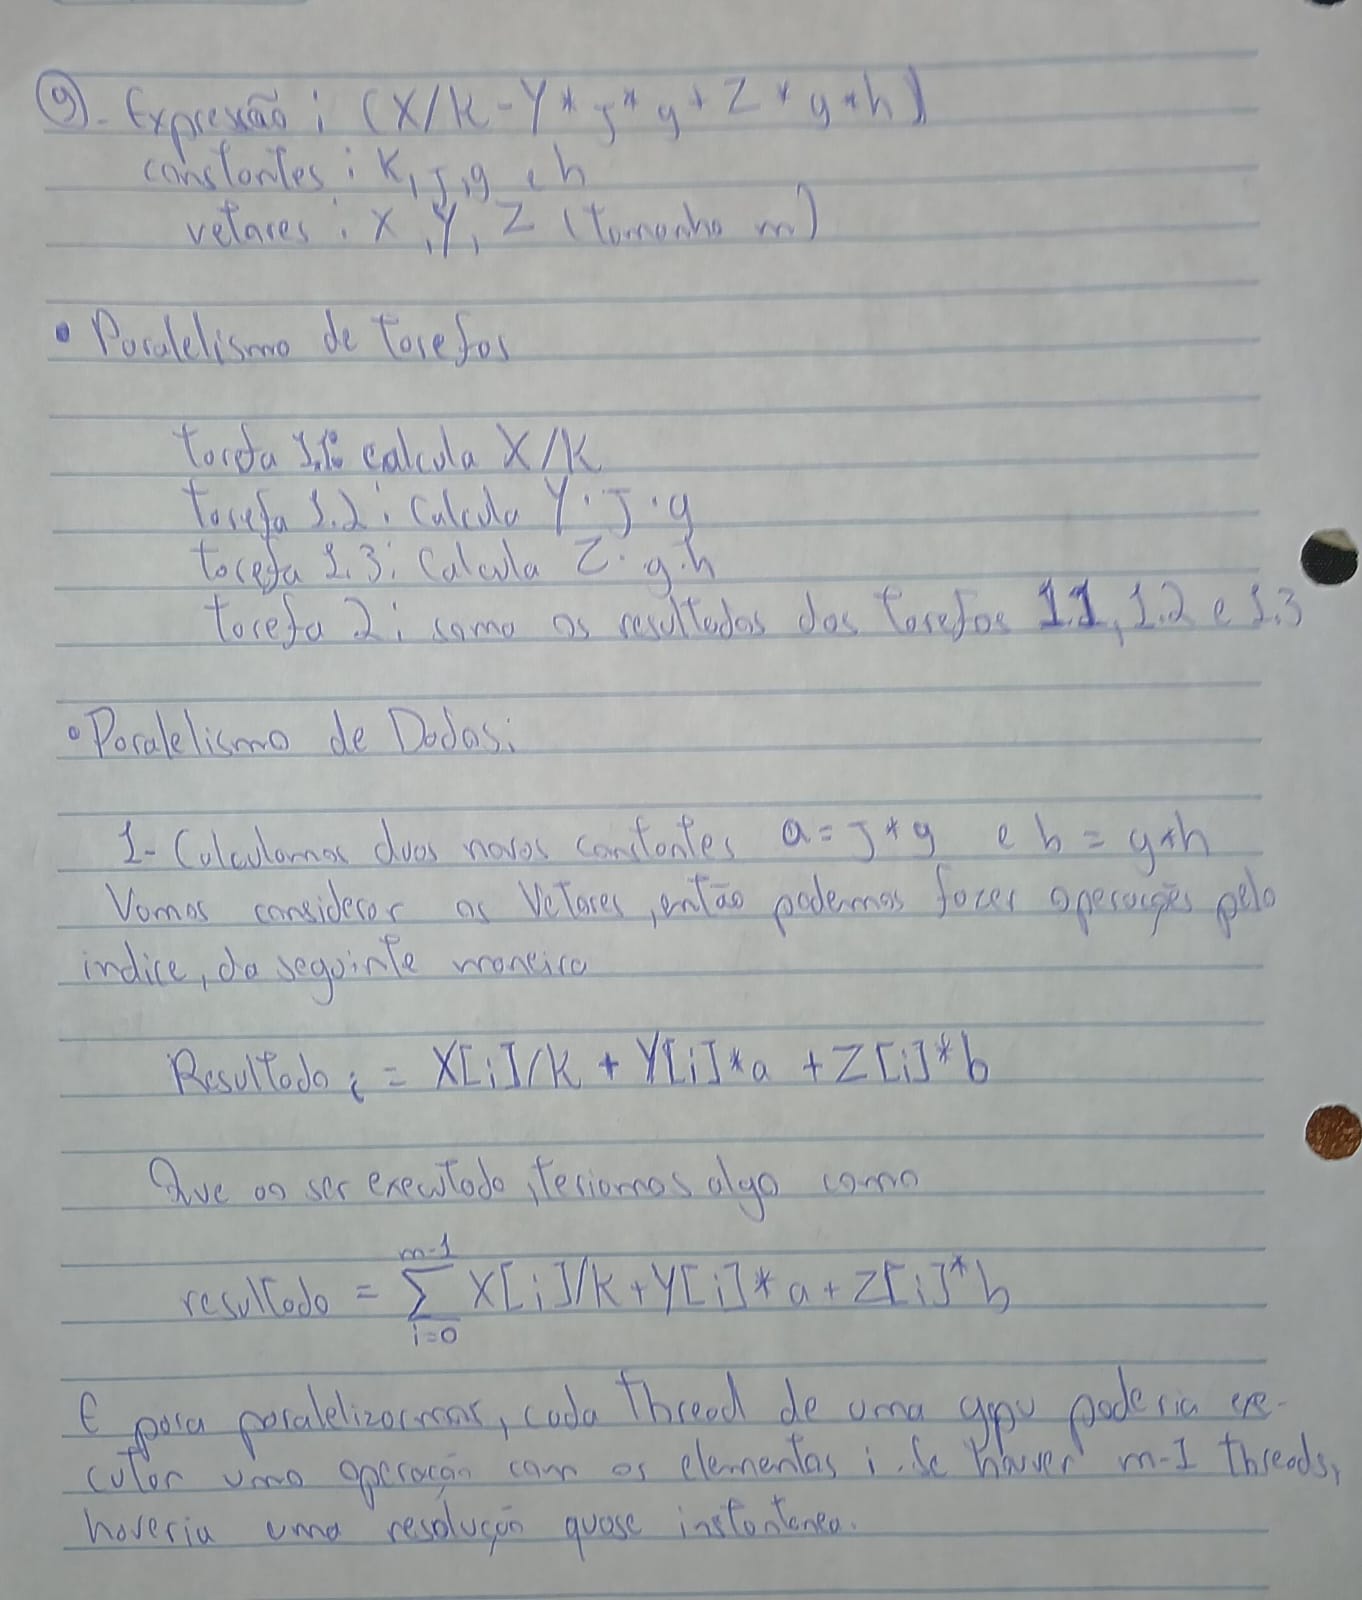 9). Expressão: (X/K - Y * J * g + Z * g * h)
constantes: K, J, g e h
vetores: X, Y, Z (tamanho m)
• Paralelismo de tarefas
tarefa 1.1: calcula X/K
tarefa 1.2: Calcula Y·J·g
tarefa 1.3: Calcula Z·g·h
tarefa 2: soma os resultados das tarefas 1.1, 1.2 e 1.3
• Paralelismo de Dados:
1- Calculamos duas novas constantes a = J * g e b = g * h
Vamos considerar os Vetores, então podemos fazer operações pelo
indice, da seguinte maneira
Resultado i = X[i]/K + Y[i]*a + Z[i]*b
Que ao ser executado, teriamos algo como
resultado = ∑ X[i]/K + Y[i]*a + Z[i]*b
m-1
i=0
E para paralelizarmos, cada thread de uma gpu poderia exe-
cutar uma operação com os elementos i. Se houver m-1 threads,
haveria uma resolução quase instantanea.